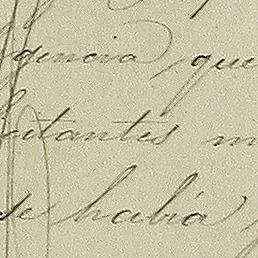 gencia, que
tantes m
se había